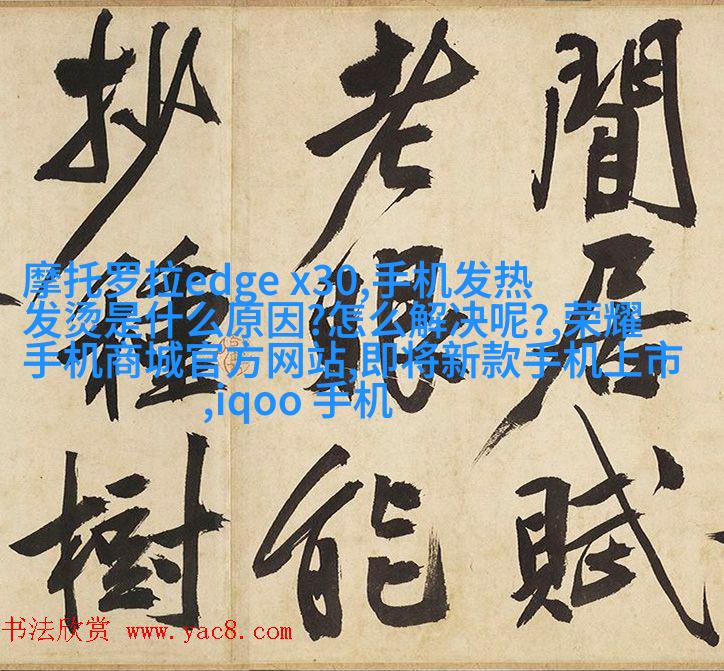 閒居賦
老眼能
抄種樹
摩托罗拉edge x30,手机发热
发烫是什么原因?怎么解决呢?,荣耀
手机商城官方网站,即将新款手机上市
,iqoo 手机
书法欣赏 www.yac8.com